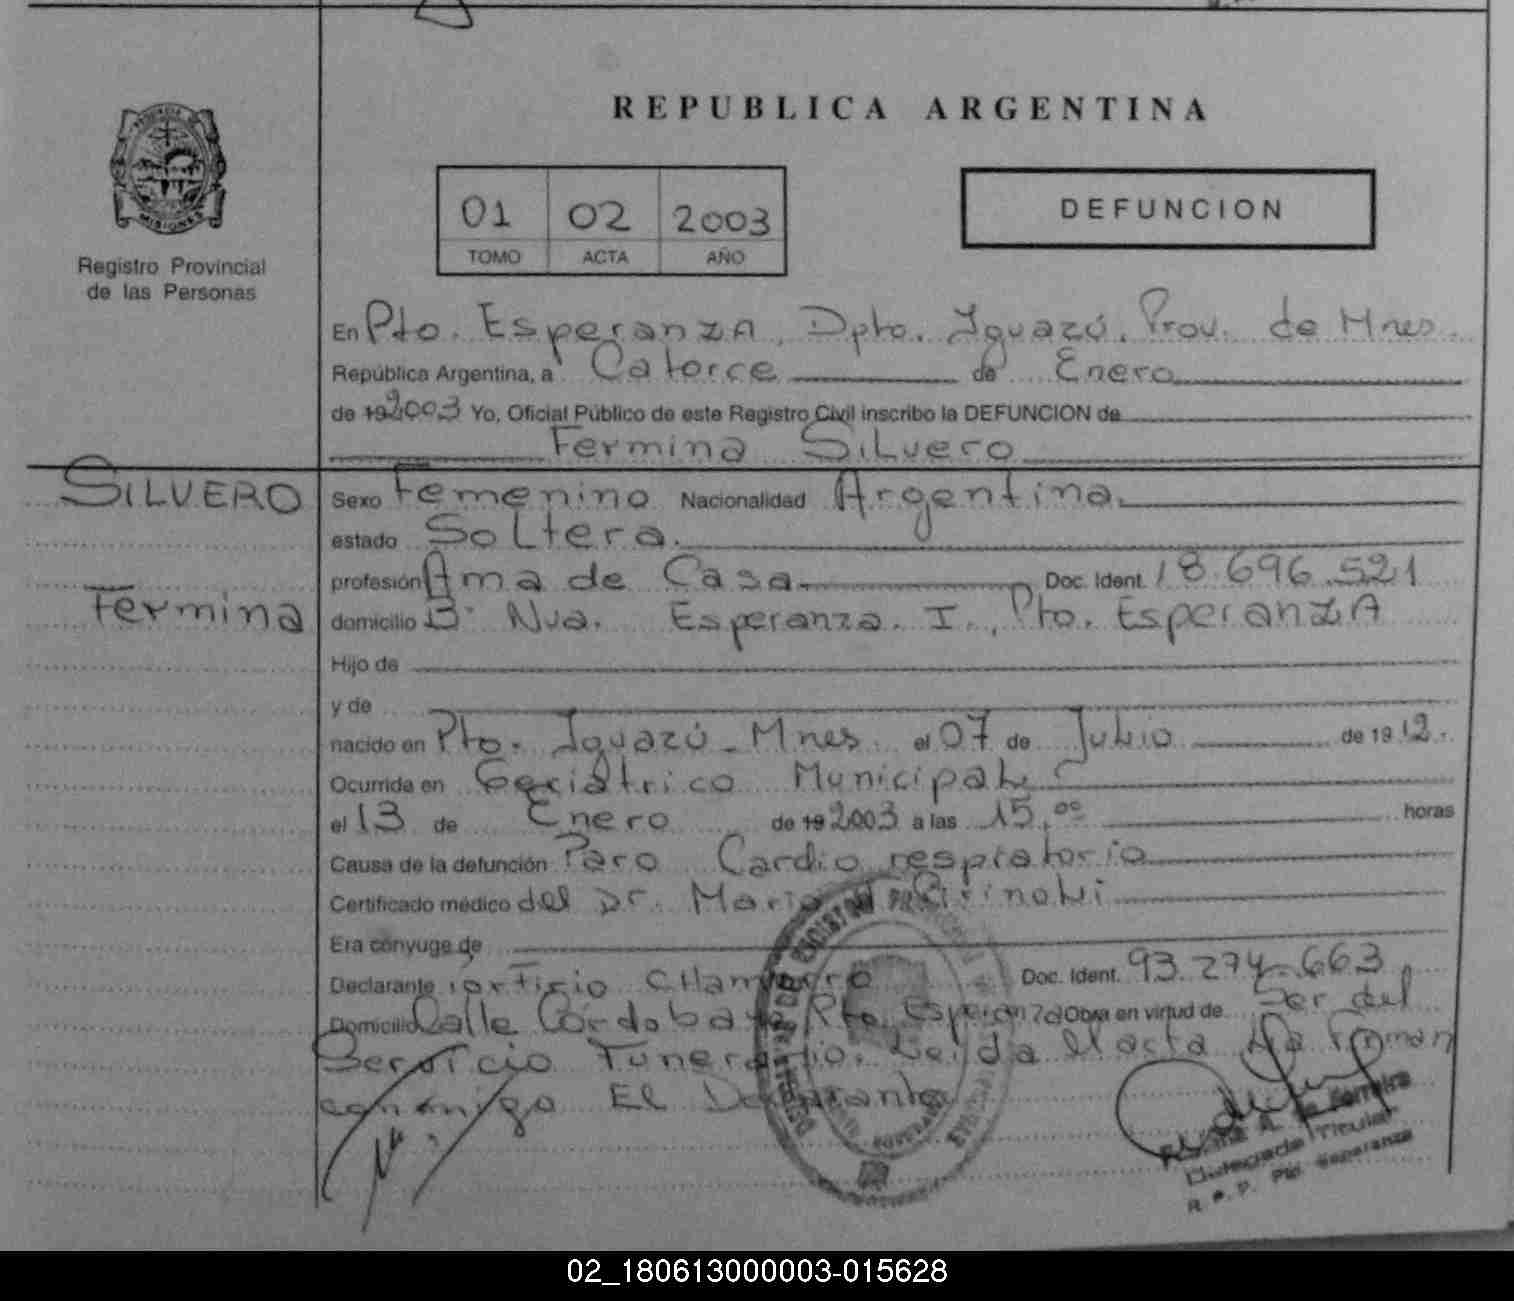 REPUBLICA ARGENTINA
MISIONES
Registro Provincial
de las Personas
01 02 2003
TOMO ACTA AÑO
DEFUNCION
En Pto. Esperanza, Dpto. Iguazú, Prov. de Mnes.
República Argentina, a Catorce de Enero
de 19 2003 Yo, Oficial Público de este Registro Civil inscribo la DEFUNCION de
Fermina Silvero
SILVERO
Fermina
Sexo Femenino Nacionalidad Argentina.
estado Soltera.
profesión Ama de Casa. Doc. Ident. 18.696.521
domicilio B° Nva. Esperanza. I., Pto. Esperanza
Hijo de
y de
nacido en Pto. Iguazú - Mnes el 07 de Julio de 19 12.
Ocurrida en Geriátrico Municipal
el 13 de Enero de 19 2003 a las 15,00 horas
Causa de la defunción Paro Cardio respiratorio
Certificado médico del Dr. Mario
Era cónyuge de
Declarante Chamorro Doc. Ident. 93.274.663
Domicilio Calle Córdoba Pto. Esperanza Obra en virtud de Ser del
Servicio Funerario. Leida el acta la Firman
conmigo El Declarante
A. de Ferreira
Delegada Titular
R. P. P. Pto. Esperanza
02_180613000003-015628